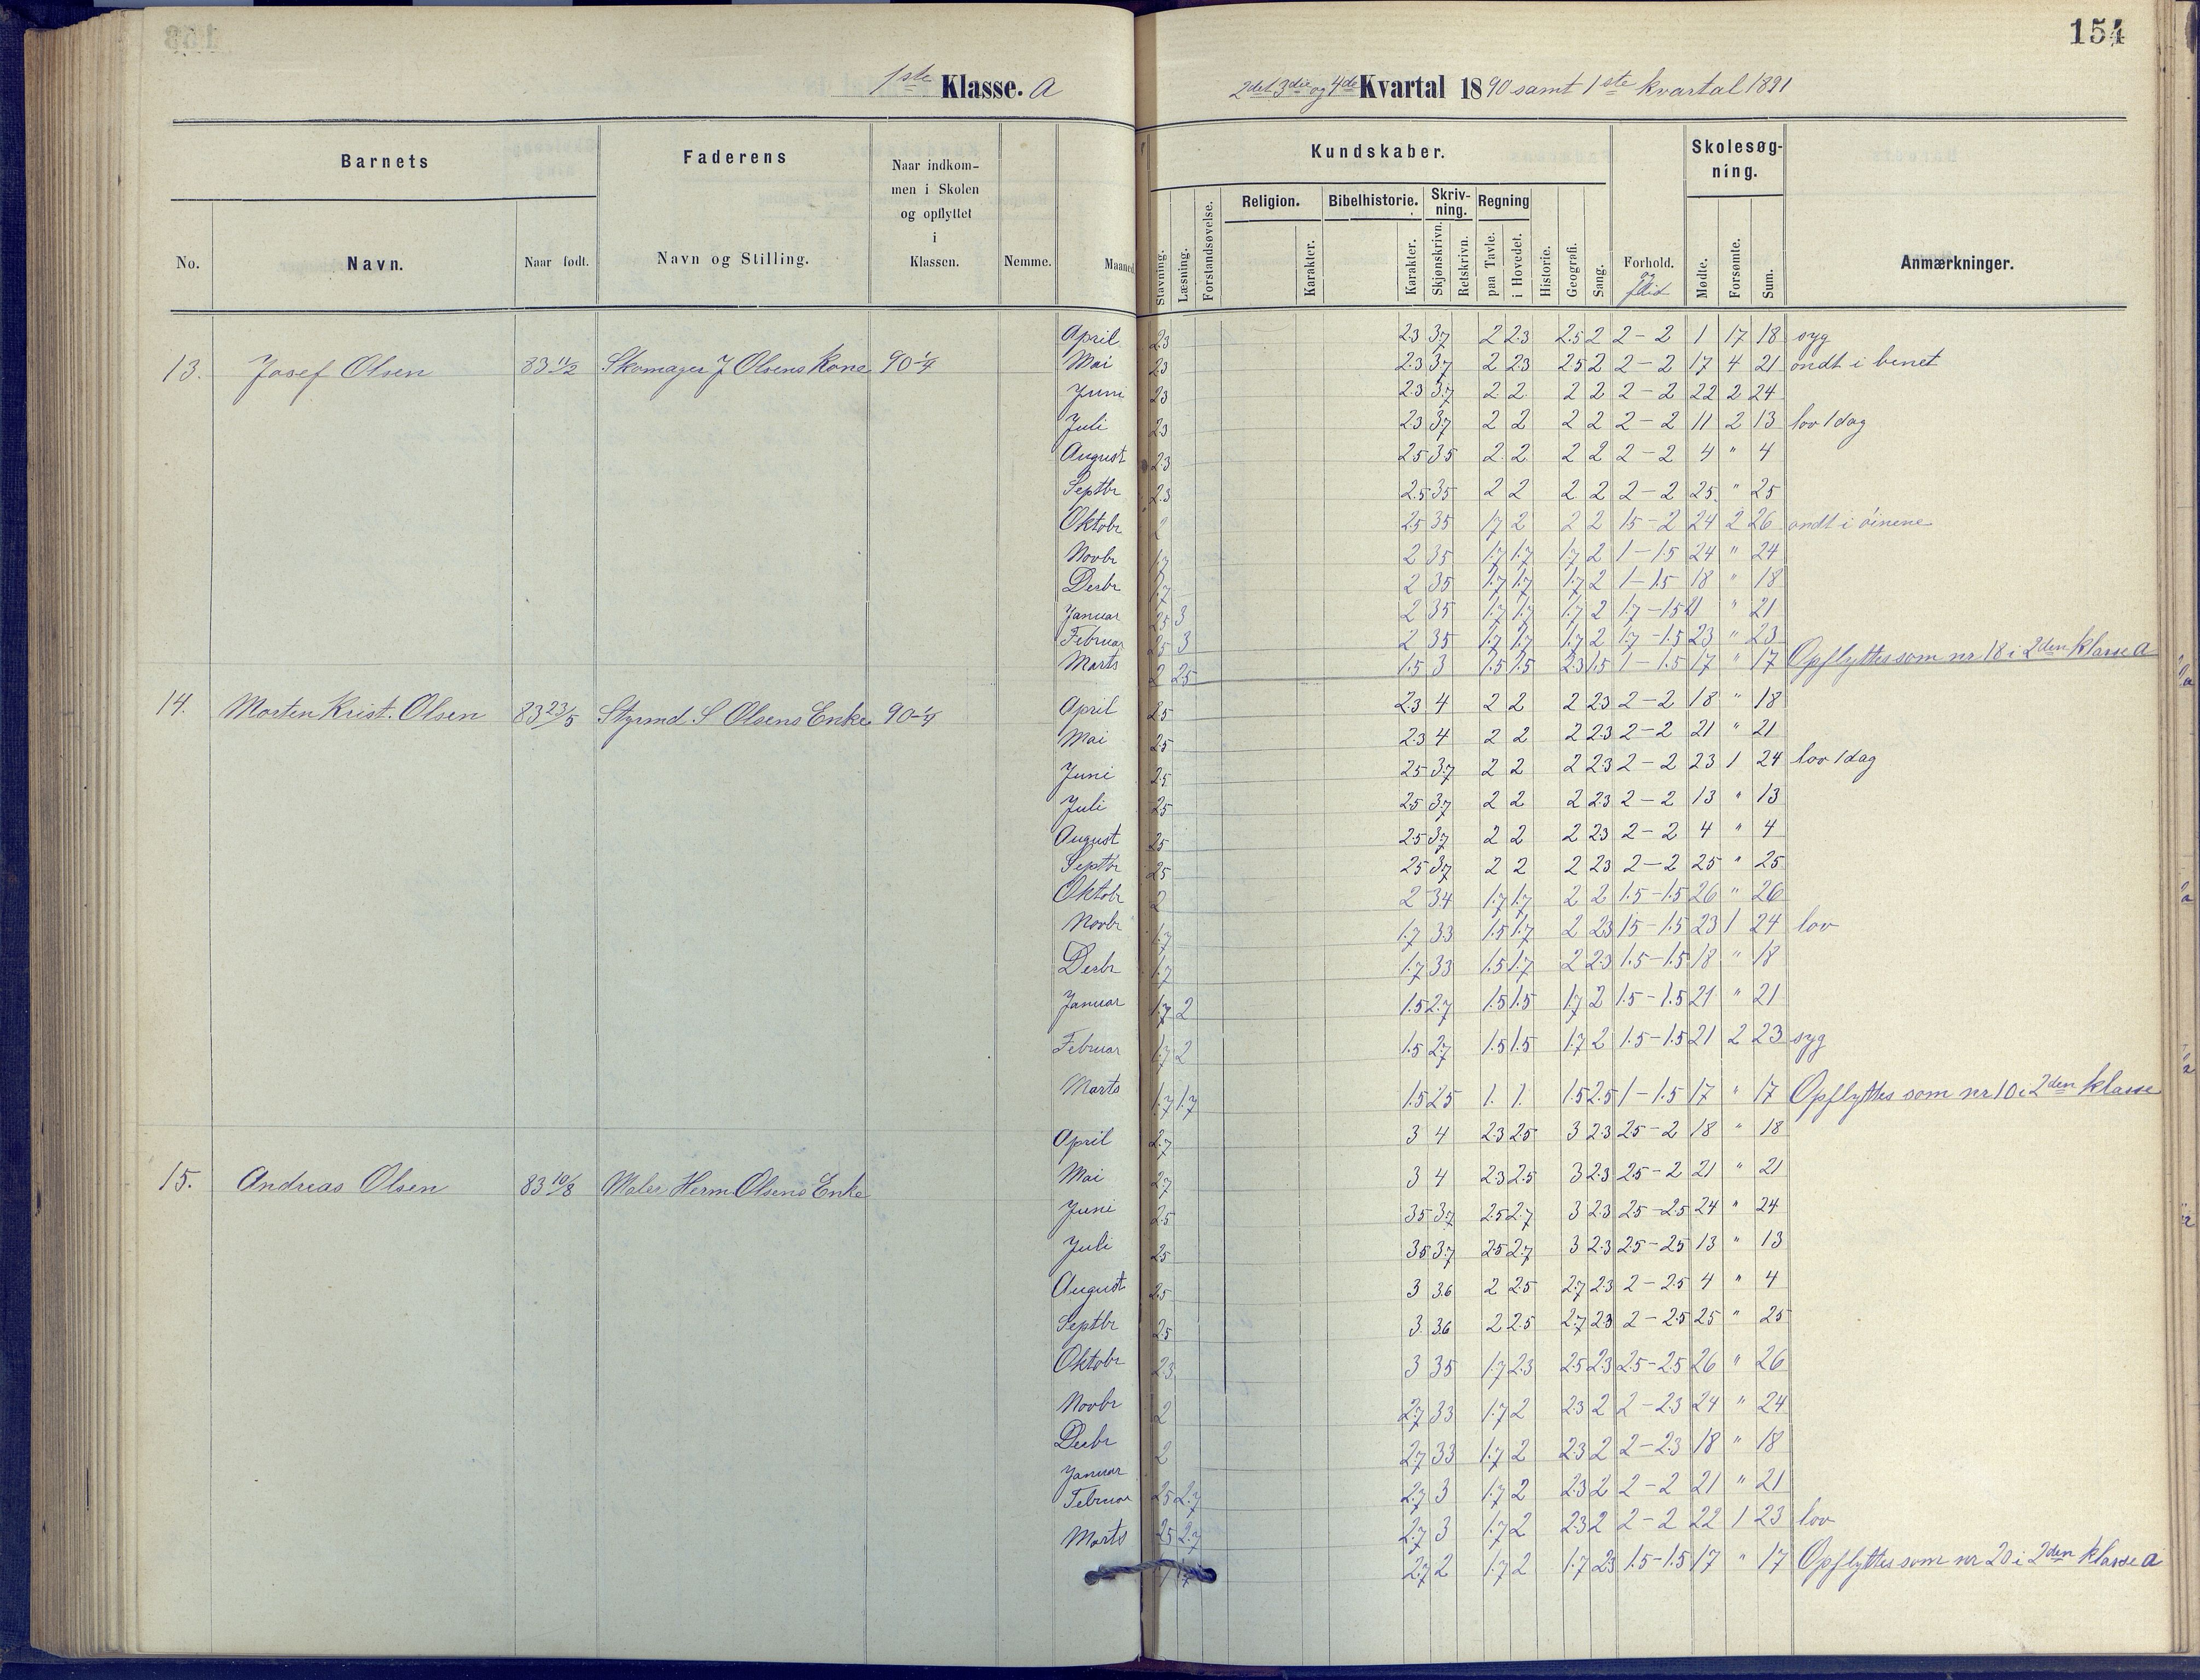 154
1ste Klasse. a
2det 3die og 4de Kvartal 1890 samt 1ste kvartal 1891
Barnets
Faderens
Naar indkom-
men i Skolen
og opflyttet
i
Klassen.
Kundskaber.
Skolesøg-
ning.
No. Navn. Naar født. Navn og Stilling. Nemme. Maaned
Stavning. Læsning. Forstandsøvelse. Religion. Karakter. Bibelhistorie. Karakter. Skriv-
ning. Skjønskrivn. Retskrivn. Regning paa Tavle. i Hovedet. Historie. Geografi. Sang. Forhold. Mødte. Forsømte. Sum. Anmærkninger.
og
flid
13. Josef Olsen 83 11/2 Skomager J Olsens Kone 90 1/4
April 2.3 2.3 3.7 2 2.3 2.5 2 2-2 1 17 18 syg
Mai 2.3 2.3 3.7 2 2.3 2.5 2 2-2 17 4 21 ondt i benet
Juni 2.3 2.3 3.7 2 2 2 2 2-2 22 2 24
Juli 2.3 2.3 3.7 2 2 2 2 2-2 11 2 13 lov 1 dag
August 2.3 2.5 3.5 2 2 2 2 2-2 4 " 4
Septbr 2.3 2.5 3.5 2 2 2 2 2-2 25 " 25
Oktobr 2 2.5 3.5 1.7 2 2 2 1.5-2 24 2 26 ondt i öinene
Novbr 1.7 2 3.5 1.7 1.7 1.7 2 1-1.5 24 " 24
Desbr 1.7 2 3.5 1.7 1.7 1.7 2 1-1.5 18 " 18
Januar 2.5 3 2 3.5 1.7 1.7 1.7 2 1.7-1.5 21 " 21
Februar 2.5 3 2 3.5 1.7 1.7 1.7 2 1.7-1.5 23 " 23
Marts 2 2.5 1.5 3 1.5 1.5 2.3 1.5 1-1.5 17 " 17 Opflyttes som nr 18 i 2den klasse a
14. Morten Krist. Olsen 83 23/5 Styrmd. S Olsens Enke 90 1/4
April 2.5 2.3 4 2 2 2 2.3 2-2 18 " 18
Mai 2.5 2.3 4 2 2 2 2.3 2-2 21 " 21
Juni 2.5 2.5 3.7 2 2 2 2.3 2-2 23 1 24 lov 1 dag
Juli 2.5 2.5 3.7 2 2 2 2.3 2-2 13 " 13
August 2.5 2.5 3.7 2 2 2 2.3 2-2 4 " 4
Septbr 2.5 2.5 3.7 2 2 2 2.3 2-2 25 " 25
Oktobr 2 2 3.4 1.7 1.7 2 2 1.5-1.5 26 " 26
Novbr 1.7 1.7 3.3 1.5 1.7 2 2.3 1.5-1.5 23 1 24 lov
Desbr 1.7 1.7 3.3 1.5 1.7 2 2.3 1.5-1.5 18 " 18
Januar 1.7 2 1.5 2.7 1.5 1.5 1.7 2 1.5-1.5 21 " 21
Februar 1.7 2 1.5 2.7 1.5 1.5 1.7 2 1.5-1.5 21 2 23 syg
Marts 1.7 1.7 1.5 2.5 1. 1. 1.5 2.5 1-1.5 17 " 17 Opflyttes som nr 10 i 2den klasse
15. Andreas Olsen 83 10/8 Maler Herm Olsens Enke
April 2.7 3 4 2.3 2.5 3 2.3 2.5-2 18 " 18
Mai 2.7 3 4 2.3 2.5 3 2.3 2.5-2 21 " 21
Juni 2.5 3.5 3.7 2.5 2.7 3 2.3 2.5-2.5 24 " 24
Juli 2.5 3.5 3.7 2.5 2.7 3 2.3 2.5-2.5 13 " 13
August 2.5 3 3.6 2 2.5 2.7 2.3 2-2.5 4 " 4
Septbr 2.5 3 3.6 2 2.5 2.7 2.3 2-2.5 25 " 25
Oktobr 2.3 3 3.5 1.7 2.3 2.5 2.3 2.5-2.5 26 " 26
Novbr 2 2.7 3.3 1.7 2 2.3 2 2-2.3 24 " 24
Desbr 2 2.7 3.3 1.7 2 2.3 2 2-2.3 18 " 18
Januar 2.5 2.7 2.7 3 1.7 2 2.3 2 2-2 21 " 21
Februar 2.5 2.7 2.7 3 1.7 2 2.3 2 2-2 22 1 23 lov
Marts 2.7 2 1.7 2 1.7 2.3 1.5-1.5 17 " 17 Opflyttes som nr 20 i 2den klasse a